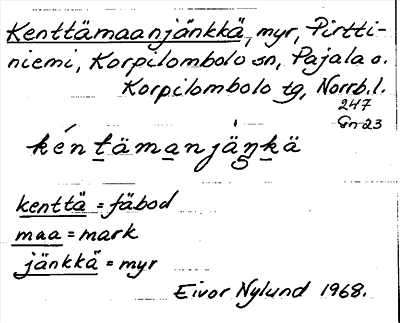 Kenttämaanjänkkä, myr, Pirtti-
niemi, Korpilombolo sn, Pajala o.
Korpilombolo tg, Norrb.l.
247
Gn 23
kéntämanjäŋkä
kenttä = fäbod
maa = mark
jänkkä = myr
Eivor Nylund 1968.